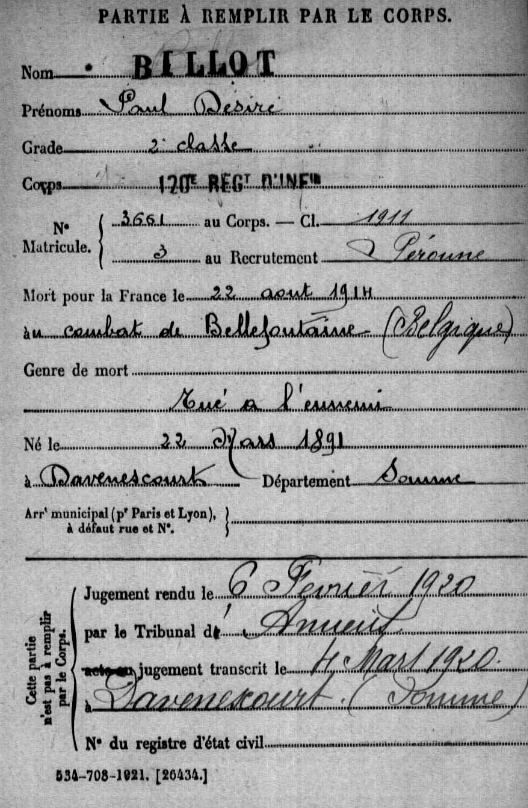 PARTIE À REMPLIR PAR LE CORPS.
Nom BILLOT
Prénoms Paul Désiré
Grade 2e classe
Corps 120E REGT D'INFie
N° Matricule. { 3661 au Corps. — Cl. 1911
3 au Recrutement Péronne
Mort pour la France le 22 aout 1914
àu combat de Bellefontaine (Belgique)
Genre de mort
Tué a l'ennemi
Né le 22 Mars 1891
à Davenescourt Département Somme
Arrt municipal (pr Paris et Lyon), à défaut rue et N°. }
Cette partie n'est pas à remplir par le Corps.
Jugement rendu le 6 Février 1920
par le Tribunal de Amiens
acte ou jugement transcrit le 4 Mars 1920.
à Davenescourt. (Somme)
N° du registre d'état civil
534-708-1921. [26434.]